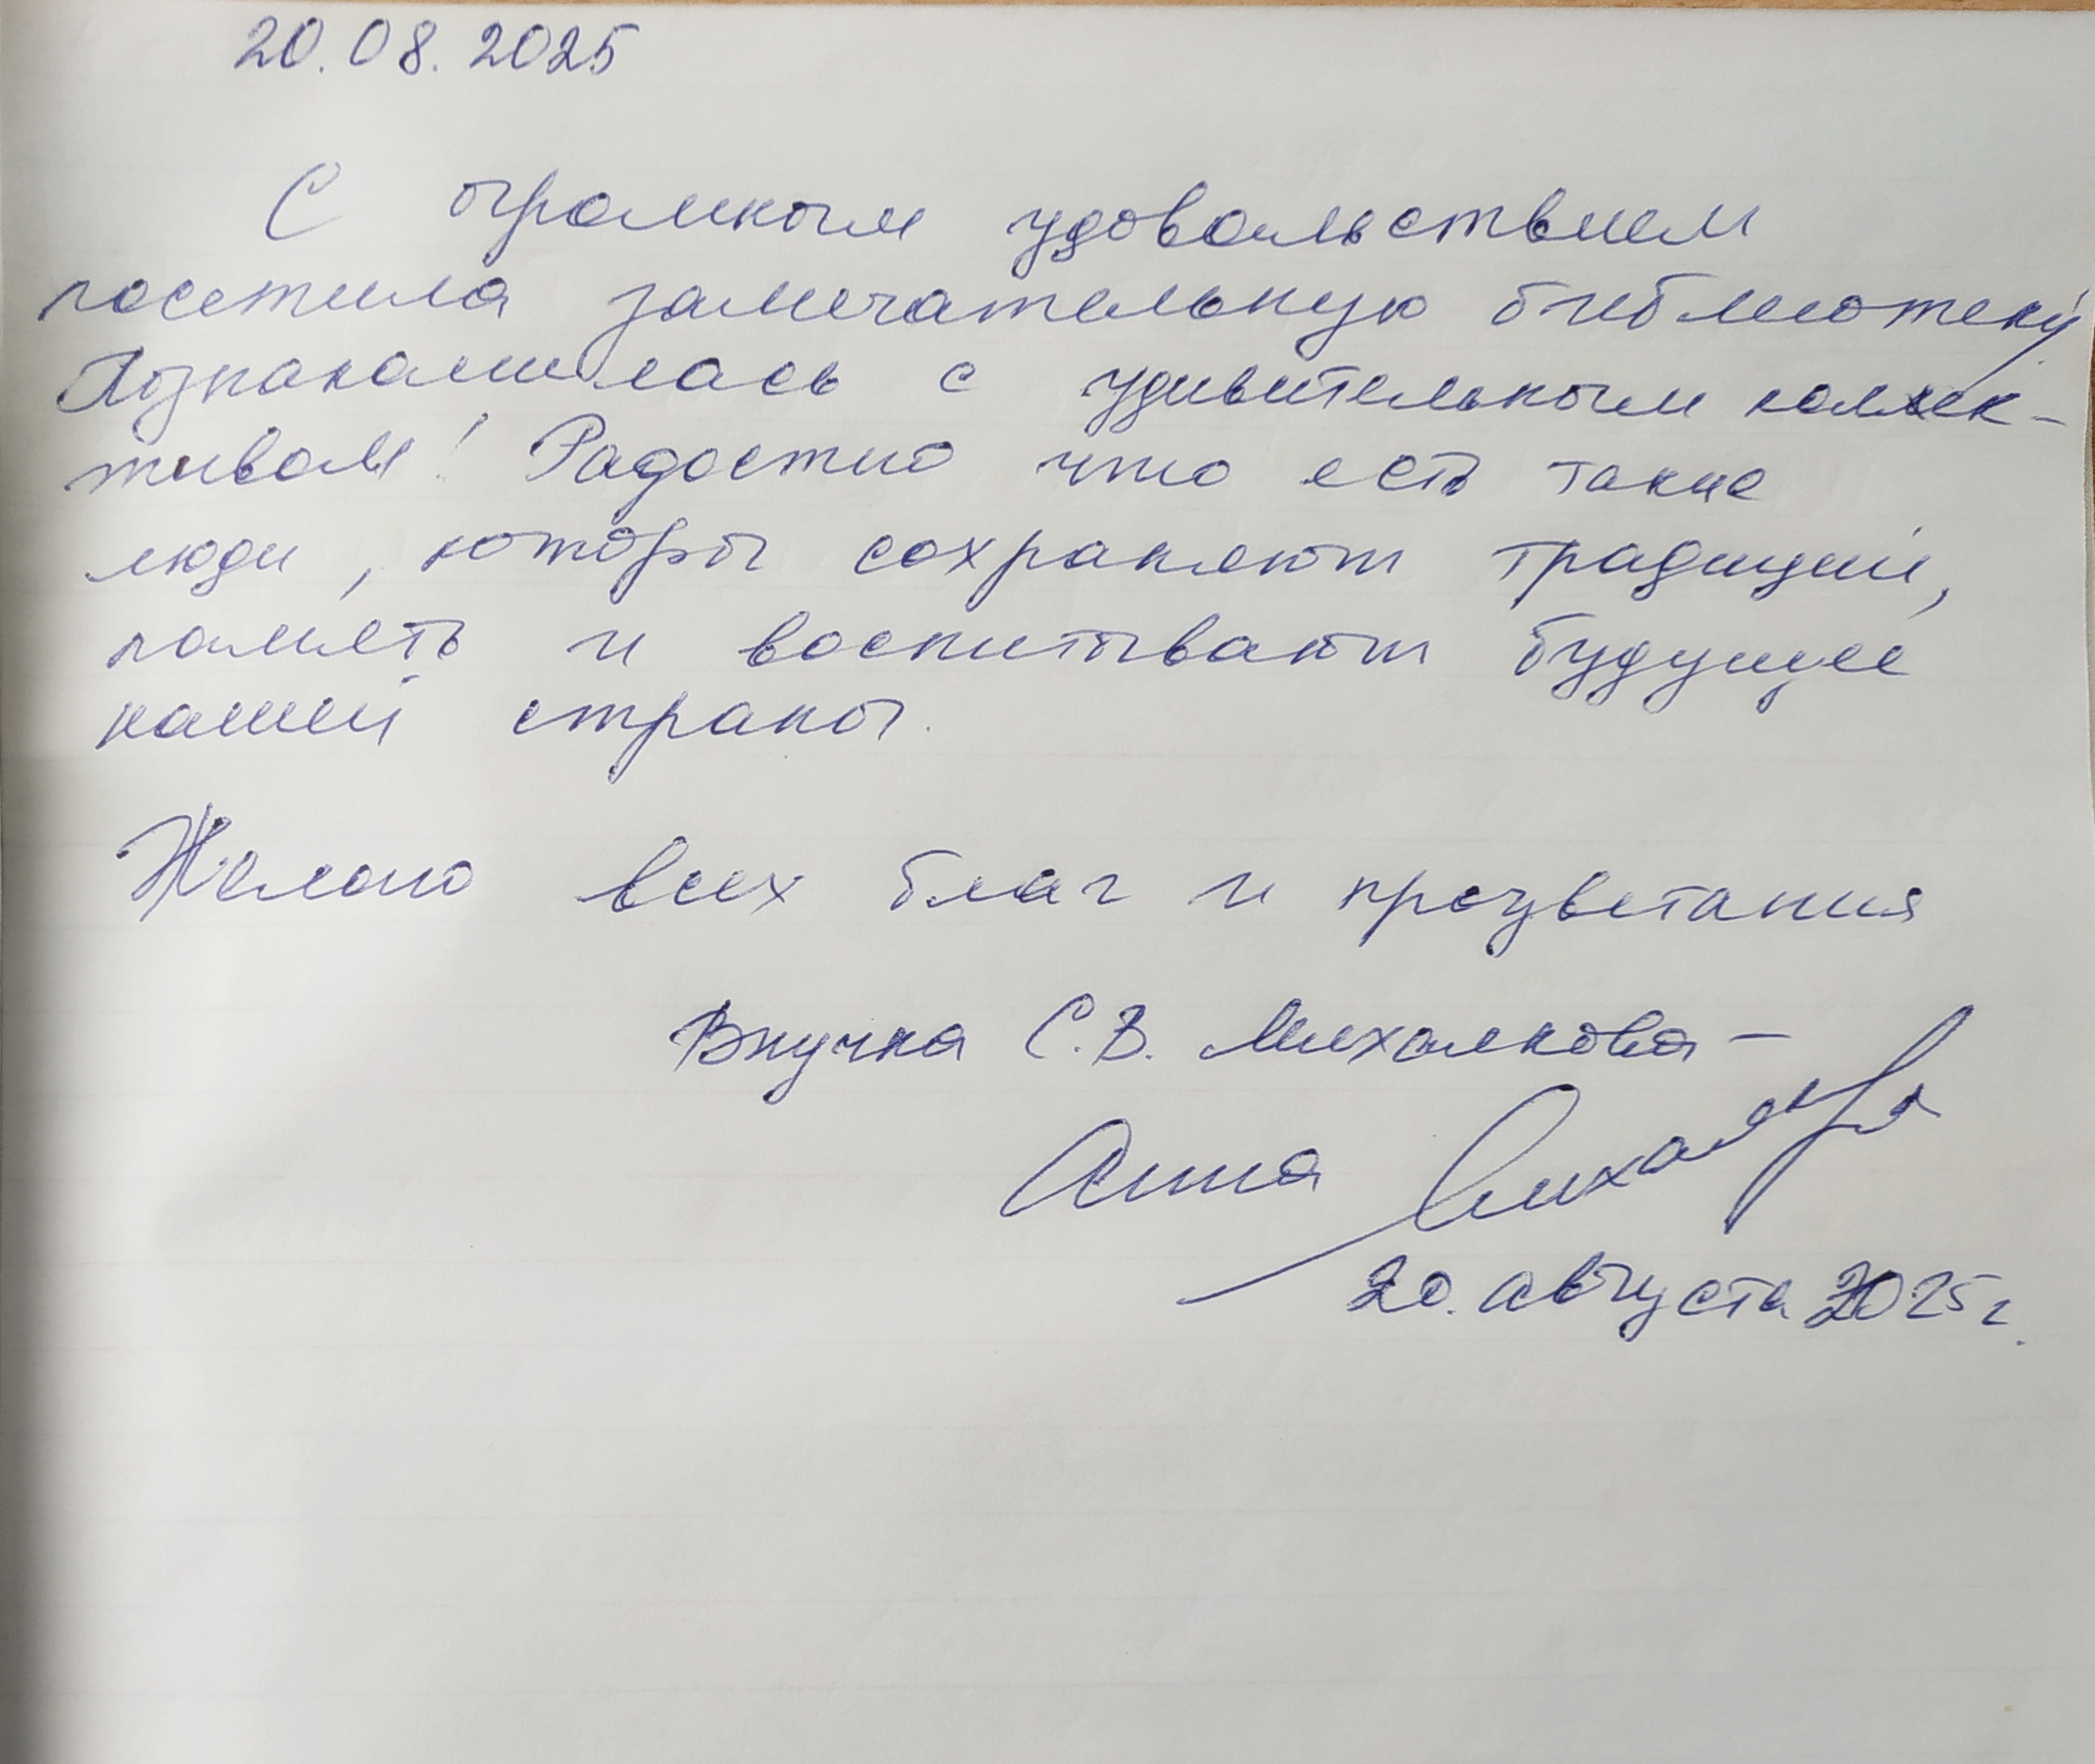 20.08.2025
С огромным удовольствием
посетила замечательную библиотеку
Познакомилась с удивительным коллек-
тивом! Радостно что есть такие
люди, которы сохраняют традиции,
память и воспитывают будущее
нашей страны.
Желаю всех благ и процветания
Внучка С.В. Михалкова -
Анна Михалкова
20. августа 2025 г.